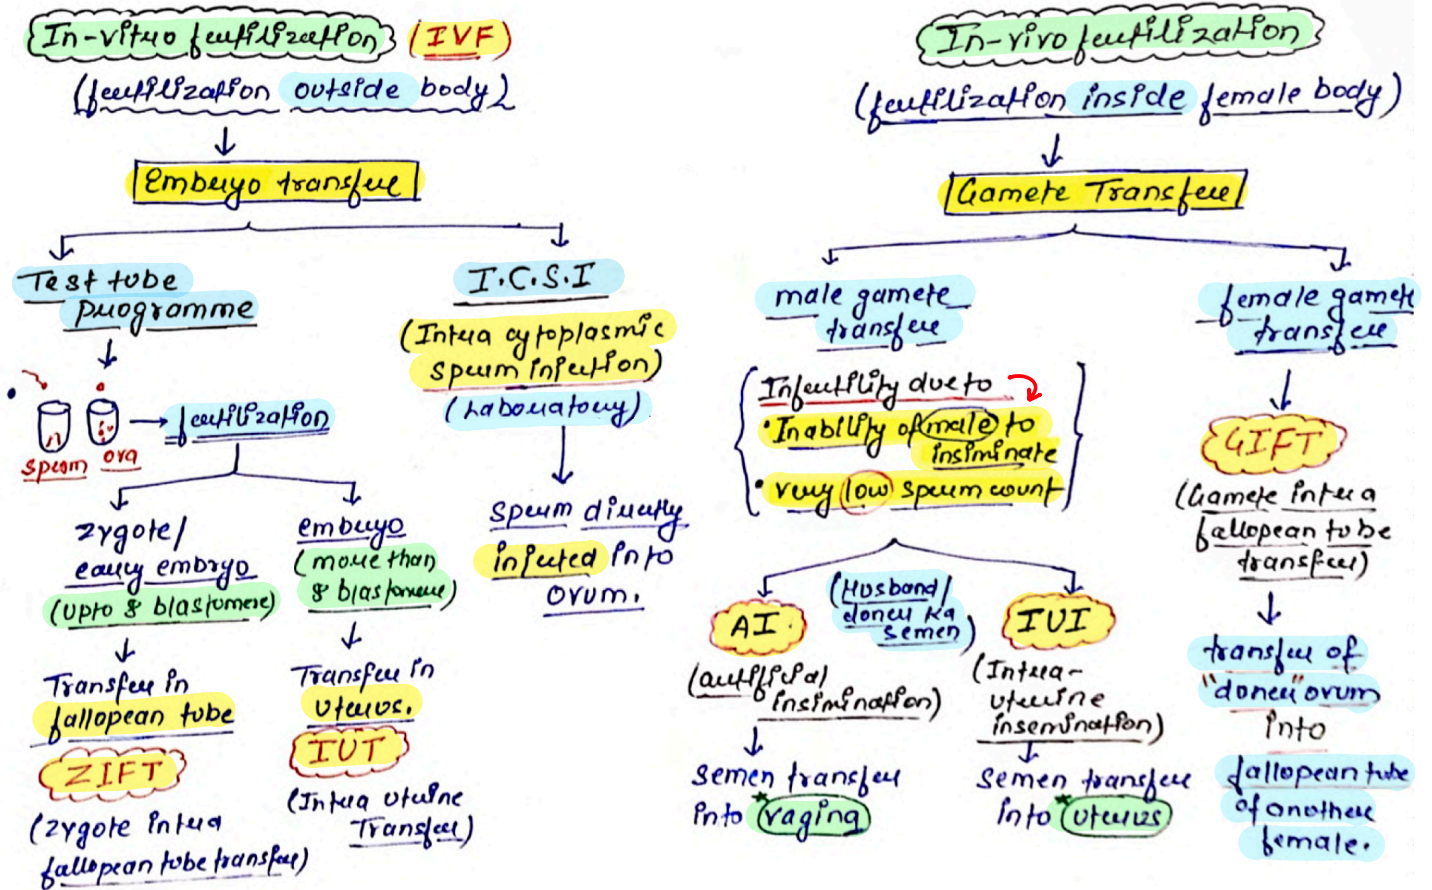 In-vitro fertilization (IVF)
(fertilization outside body)
Embryo transfer
Test tube
programme
sperm ova
fertilization
zygote/
early embryo
(upto 8 blastomere)
Transfer in
fallopean tube
ZIFT
(Zygote intra
fallopean tube transfer)
embryo
(more than
8 blastomere)
Transfer in
uterus.
IUT
(Intra uterine
Transfer)
I.C.S.I
(Intra cytoplasmic
sperm injection)
(Laboratory)
sperm directly
injected into
ovum.
In-vivo fertilization
(fertilization inside female body)
Gamete Transfer
male gamete
transfer
Infertility due to
• Inability of male to
insiminate
• very low sperm count
(Husband/
doner ka
semen)
AI
(artificial
insimination)
semen transfer
into *vagina
IUI
(Intra-
uterine
insemination)
semen transfer
into *uterus
female gamete
transfer
GIFT
(Gamete intra
fallopean tube
transfer)
transfer of
"doner" ovum
into
fallopean tube
of another
female.